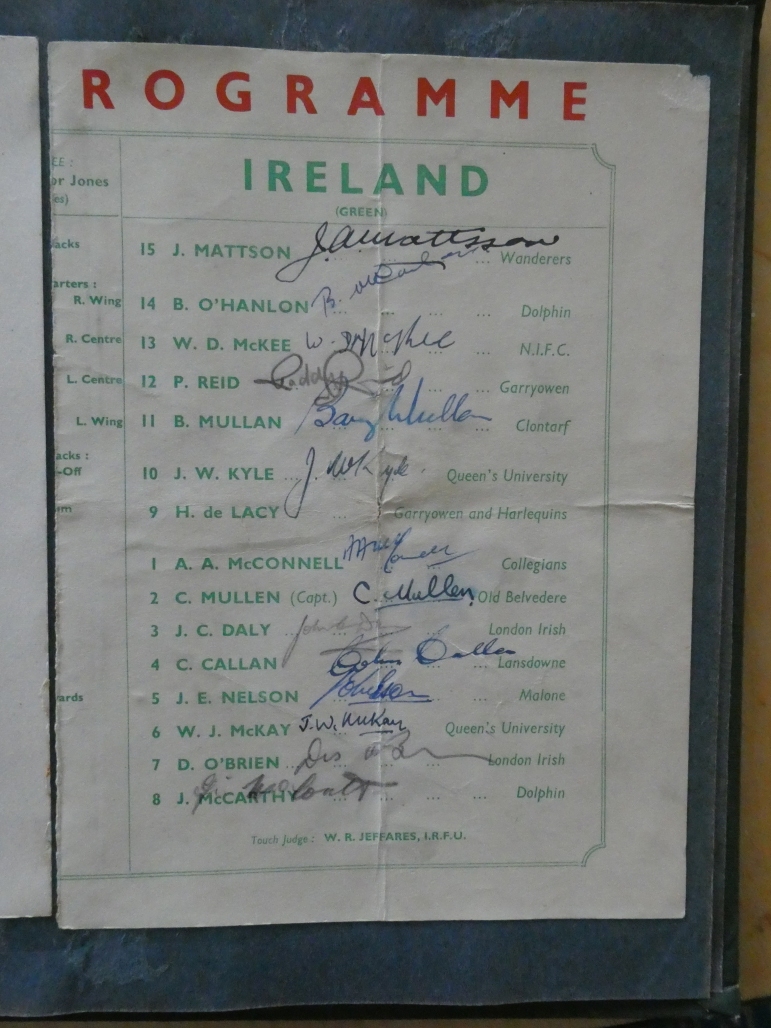 ROGRAMME
EE :
or Jones
es)
IRELAND
(GREEN)
acks
15 J. MATTSON J. A. Mattsson ... Wanderers
arters :
R. Wing 14 B. O'HANLON B. ... ... ... Dolphin
R. Centre 13 W. D. McKEE W. D. McKee N.I.F.C.
L. Centre 12 P. REID Paddy Reid ... ... Garryowen
L. Wing 11 B. MULLAN Barney Mullan Clontarf
acks :
-Off 10 J. W. KYLE ... J. W. Kyle. Queen's University
9 H. de LACY ... Garryowen and Harlequins
1 A. A. McCONNELL ... Collegians
2 C. MULLEN (Capt.) C. Mullen Old Belvedere
3 J. C. DALY ... John C. Da ... London Irish
4 C. CALLAN Colm Callan Lansdowne
ards 5 J. E. NELSON ... Malone
6 W. J. McKAY J. W. McKay Queen's University
7 D. O'BRIEN ... Des O'B London Irish
8 J. McCARTHY ... ... ... Dolphin
Touch Judge : W. R. JEFFARES, I.R.F.U.